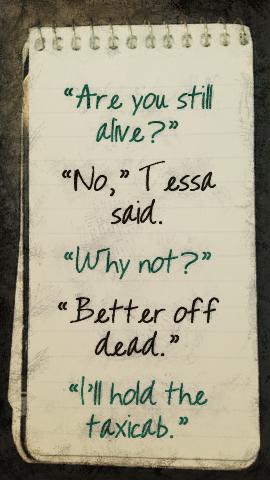 “Are you still
alive?”
“No,” Tessa
said.
“Why not?”
“Better off
dead.”
“I'll hold the
taxicab.”